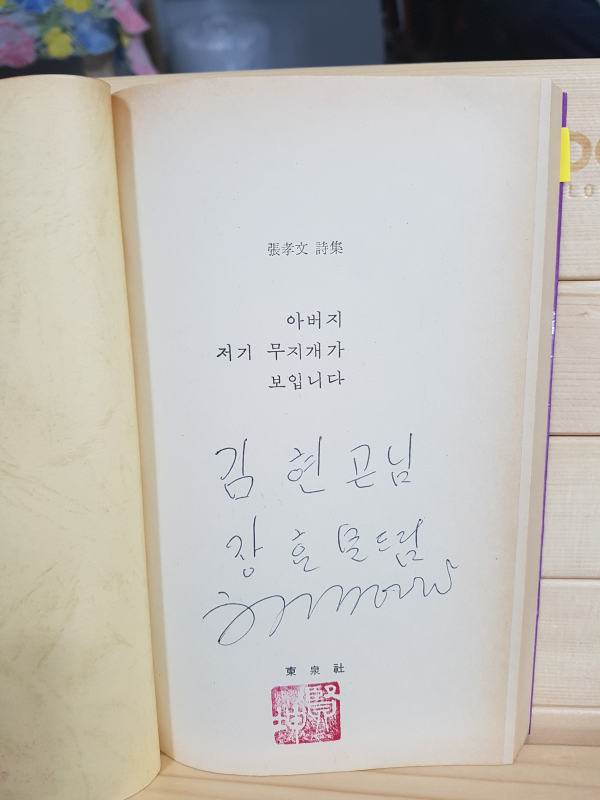 張孝文 詩集
아버지
저기 무지개가
보입니다
김 현 곤님
장 효 문드림
東泉社